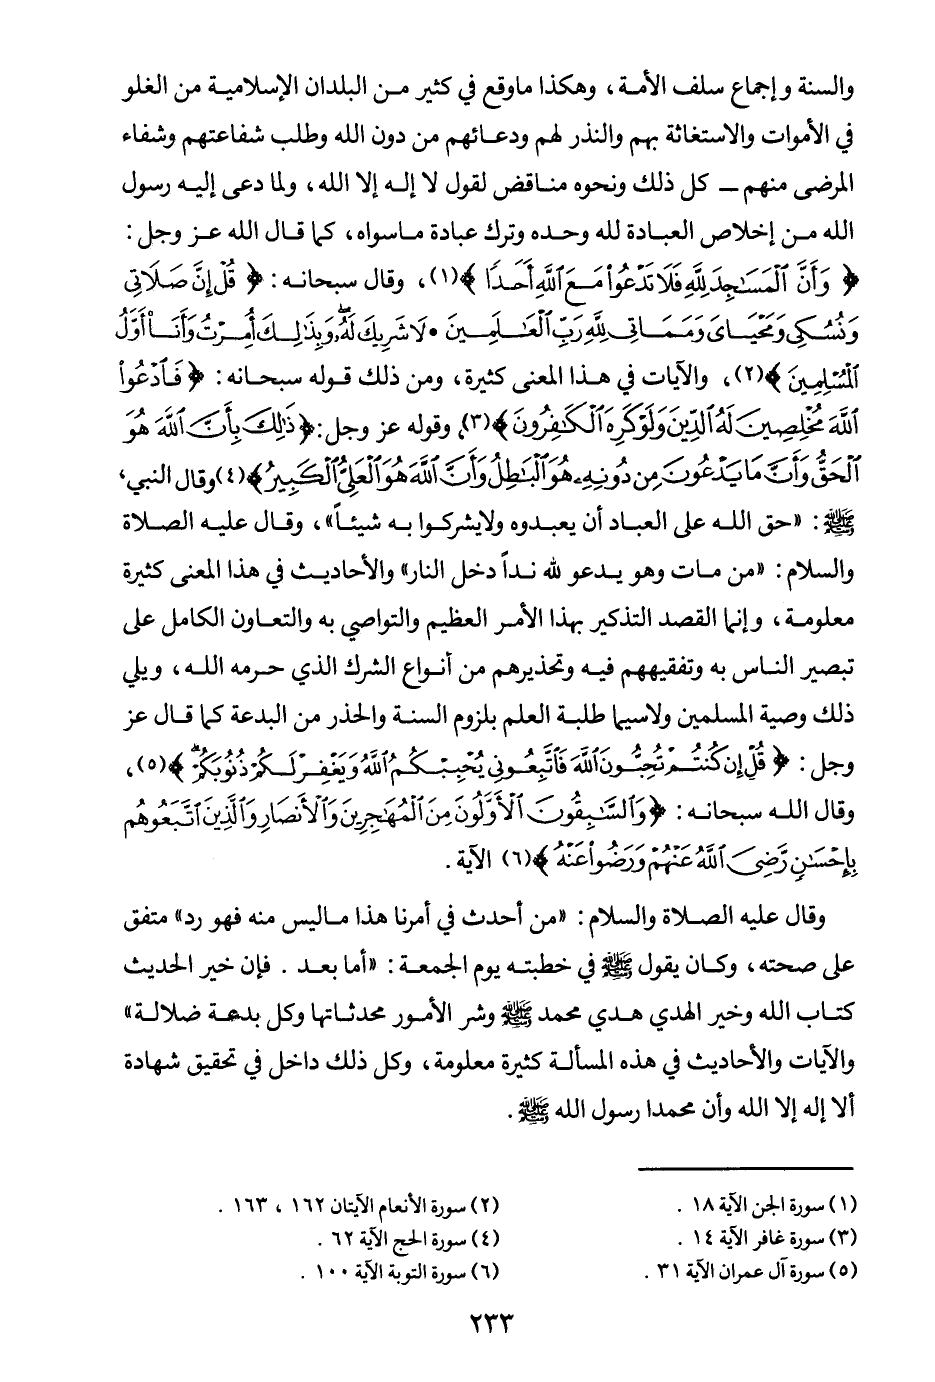 والسنة وإجماع سلف الأمة، وهكذا ماوقع في كثير من البلدان الإسلامية من الغلو
في الأموات والاستغاثة بهم والنذر لهم ودعائهم من دون الله وطلب شفاعتهم وشفاء
المرضى منهم ــ كل ذلك ونحوه مناقض لقول لا إله إلا الله، ولما دعى إليه رسول
الله من إخلاص العبادة لله وحده وترك عبادة ماسواه، كما قال الله عز وجل:
﴿ وَأَنَّ ٱلْمَسَٰجِدَ لِلَّهِ فَلَا تَدْعُوا۟ مَعَ ٱللَّهِ أَحَدًا ﴾(١)، وقال سبحانه: ﴿ قُلْ إِنَّ صَلَاتِى
وَنُسُكِى وَمَحْيَاىَ وَمَمَاتِى لِلَّهِ رَبِّ ٱلْعَٰلَمِينَ • لَا شَرِيكَ لَهُۥ وَبِذَٰلِكَ أُمِرْتُ وَأَنَا۠ أَوَّلُ
ٱلْمُسْلِمِينَ ﴾(٢)، والآيات في هذا المعنى كثيرة، ومن ذلك قوله سبحانه: ﴿ فَٱدْعُوا۟
ٱللَّهَ مُخْلِصِينَ لَهُ ٱلدِّينَ وَلَوْ كَرِهَ ٱلْكَٰفِرُونَ ﴾(٣)، وقوله عز وجل: ﴿ ذَٰلِكَ بِأَنَّ ٱللَّهَ هُوَ
ٱلْحَقُّ وَأَنَّ مَا يَدْعُونَ مِن دُونِهِۦ هُوَ ٱلْبَٰطِلُ وَأَنَّ ٱللَّهَ هُوَ ٱلْعَلِىُّ ٱلْكَبِيرُ ﴾(٤) وقال النبي،
ﷺ: «حق الله على العباد أن يعبدوه ولايشركوا به شيئاً»، وقال عليه الصلاة
والسلام: «من مات وهو يدعو لله نداً دخل النار» والأحاديث في هذا المعنى كثيرة
معلومة، وإنما القصد التذكير بهذا الأمر العظيم والتواصي به والتعاون الكامل على
تبصير الناس به وتفقيههم فيه وتحذيرهم من أنواع الشرك الذي حرمه الله، ويلي
ذلك وصية المسلمين ولاسيما طلبة العلم بلزوم السنة والحذر من البدعة كما قال عز
وجل: ﴿ قُلْ إِن كُنتُمْ تُحِبُّونَ ٱللَّهَ فَٱتَّبِعُونِى يُحْبِبْكُمُ ٱللَّهُ وَيَغْفِرْ لَكُمْ ذُنُوبَكُمْ ﴾(٥)،
وقال الله سبحانه: ﴿ وَٱلسَّٰبِقُونَ ٱلْأَوَّلُونَ مِنَ ٱلْمُهَٰجِرِينَ وَٱلْأَنصَارِ وَٱلَّذِينَ ٱتَّبَعُوهُم
بِإِحْسَٰنٍ رَّضِىَ ٱللَّهُ عَنْهُمْ وَرَضُوا۟ عَنْهُ ﴾(٦) الآية.
وقال عليه الصلاة والسلام: «من أحدث في أمرنا هذا ماليس منه فهو رد» متفق
على صحته، وكان يقول ﷺ في خطبته يوم الجمعة: «أما بعد. فإن خير الحديث
كتاب الله وخير الهدي هدي محمد ﷺ وشر الأمور محدثاتها وكل بدعة ضلالة»
والآيات والأحاديث في هذه المسألة كثيرة معلومة، وكل ذلك داخل في تحقيق شهادة
ألا إله إلا الله وأن محمدا رسول الله ﷺ.
(١) سورة الجن الآية ١٨. (٢) سورة الأنعام الآيتان ١٦٢، ١٦٣.
(٣) سورة غافر الآية ١٤. (٤) سورة الحج الآية ٦٢.
(٥) سورة آل عمران الآية ٣١. (٦) سورة التوبة الآية ١٠٠.
٢٣٣